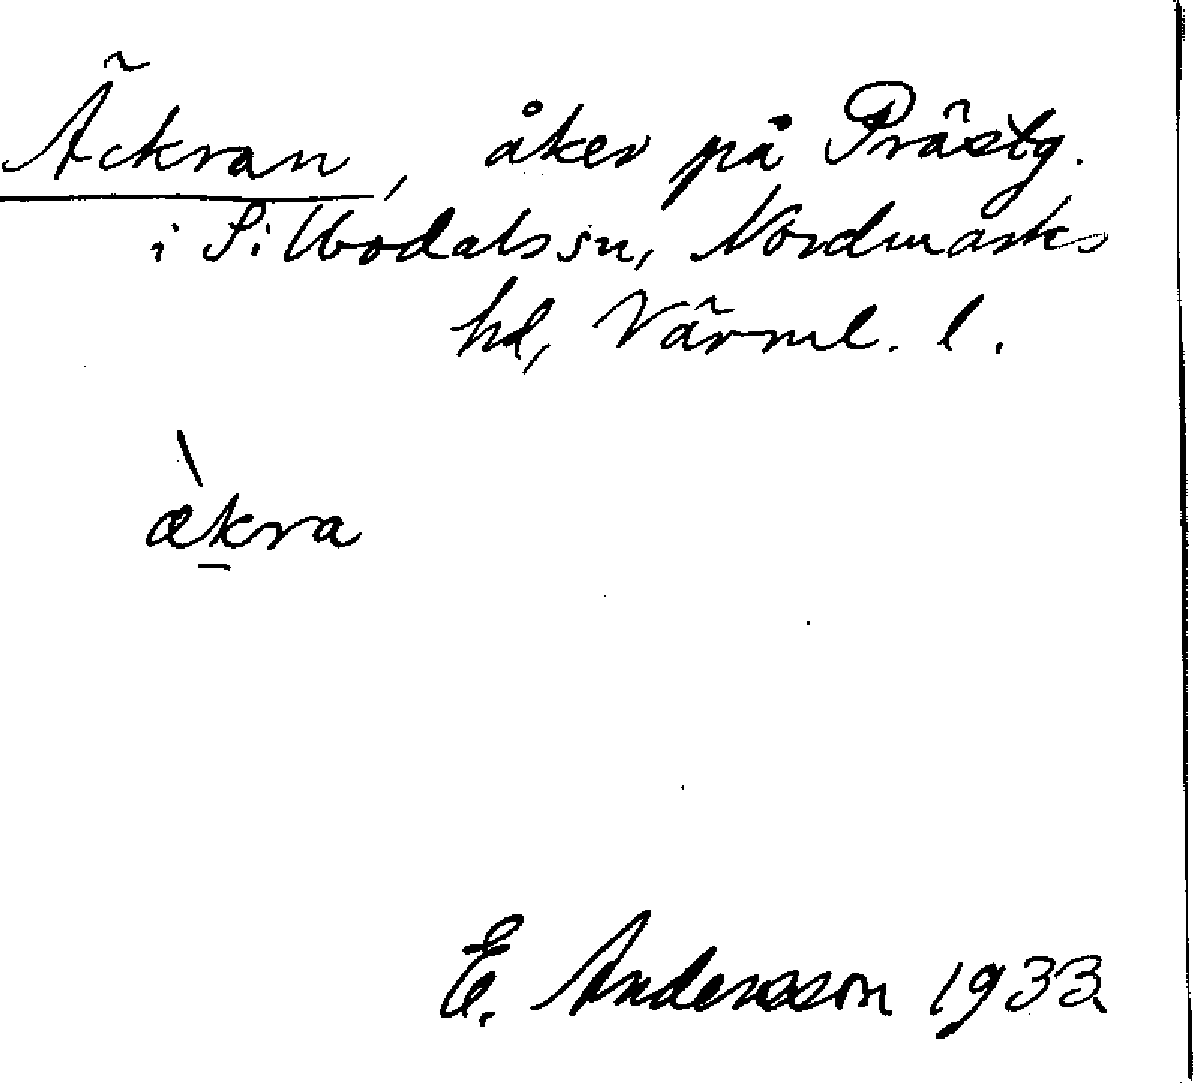 Äckran, åker på Prästg.
i Silbodalssn, Nordmarks
hd, Värml. l.
æ̀kra
E. Andersson 1933.